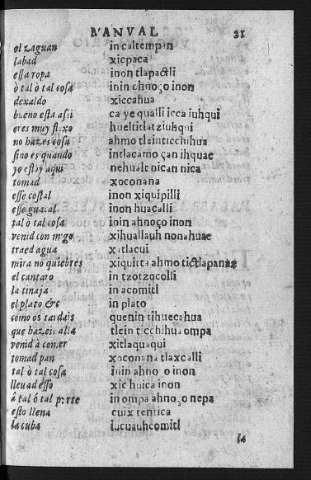 MANVAL 31
el zaguan in caltempan
labad xicpaca
essa ropa inon tlapactli
ò tal ò tal cosa inin ahnoço inon
dexaldo xiccahua
bueno esta assi ca ye qualli icca iuhqui
eres muy floxo huel titlatziuhqui
no hazes cosa ahmo tlein ticchihua
sino es quando intlacamo çan ihquac
yo estoy aqui nehuatl nican nica
tomad xoconana
esse costal inon xiquipilli
esse guacal inon huacalli
tal ò tal cosa inin ahnoço inon
venid con migo xihuallauh nonahuac
traed agua xatlacui
mira no quiebres xiquitta ahmo tictlapanaz
el cantaro in tzotzocolli
la tinaja in acomitl
el plato &c in plato
como os tardais quenin tihuecahua
que hazeis alla tlein ticchihua ompa
venid à comer xitlaquaqui
tomad pan xoconana tlaxcalli
tal ò tal cosa inin ahnoço inon
lleuad esso xichuica inon
á tal ó tal parte in ompa ahnoço nepa
esto llena cuix tentica
la cuba in cuauhcomitl
la